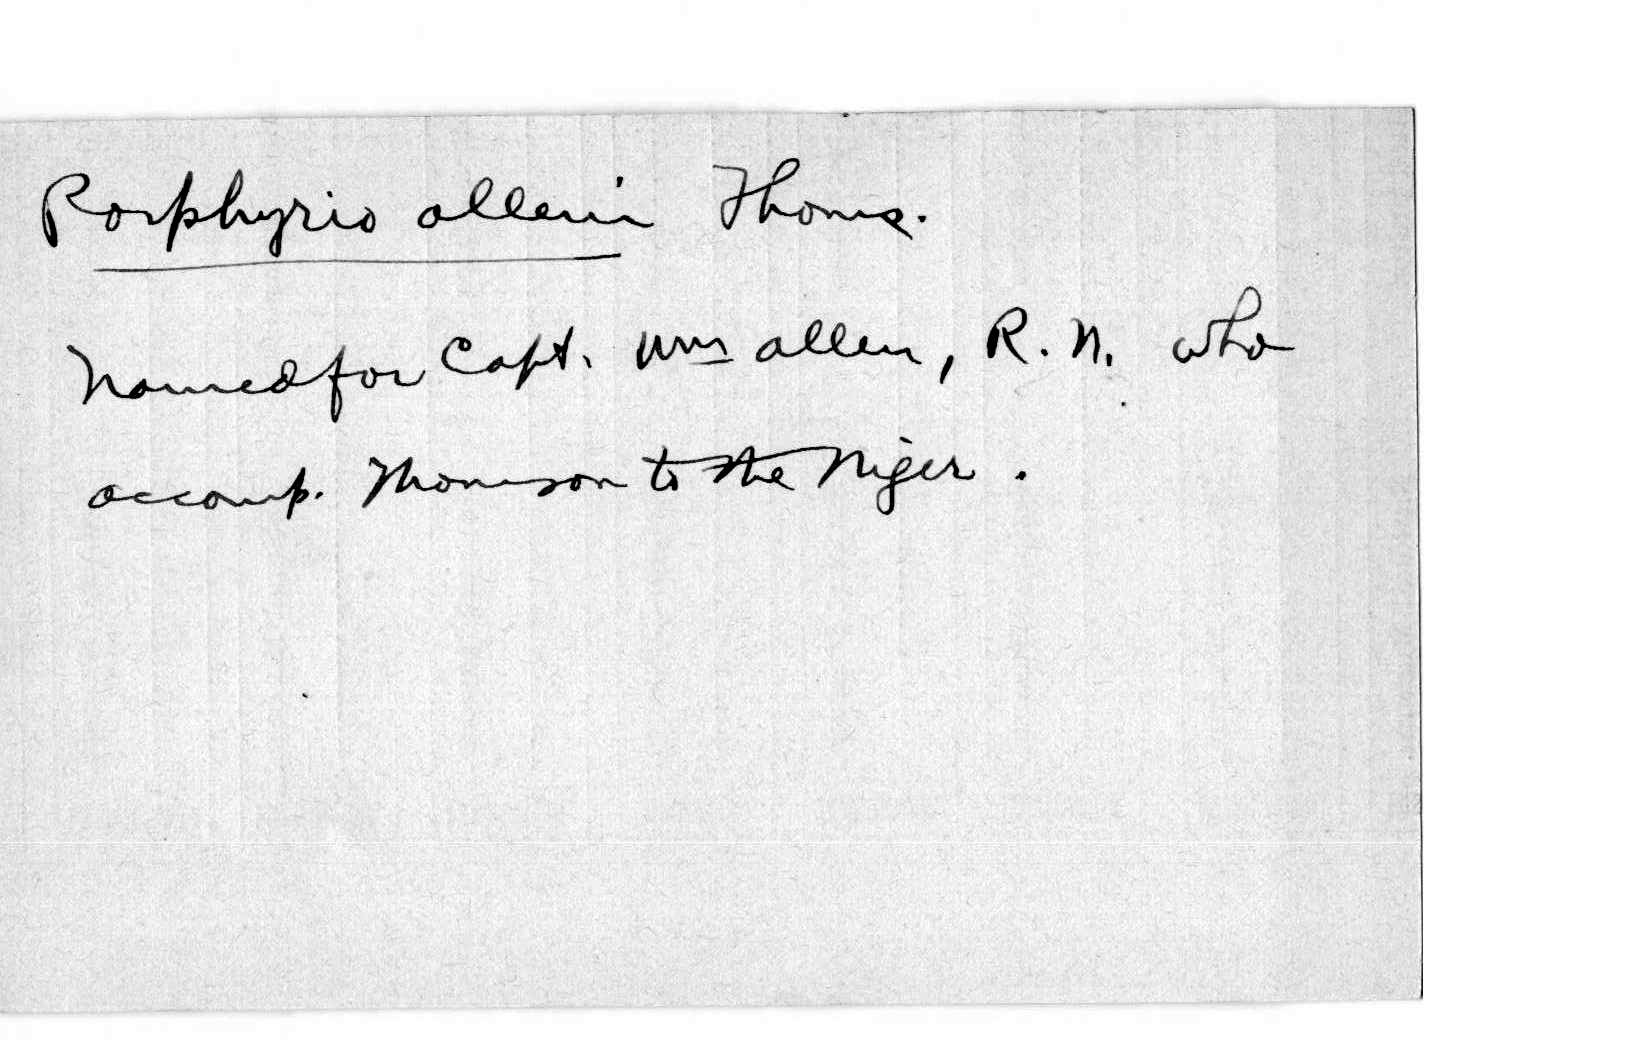 Porphyrio alleni Thoms.
Named for Capt. Wm Allen, R.N. who
accomp. Thomson to the Niger.